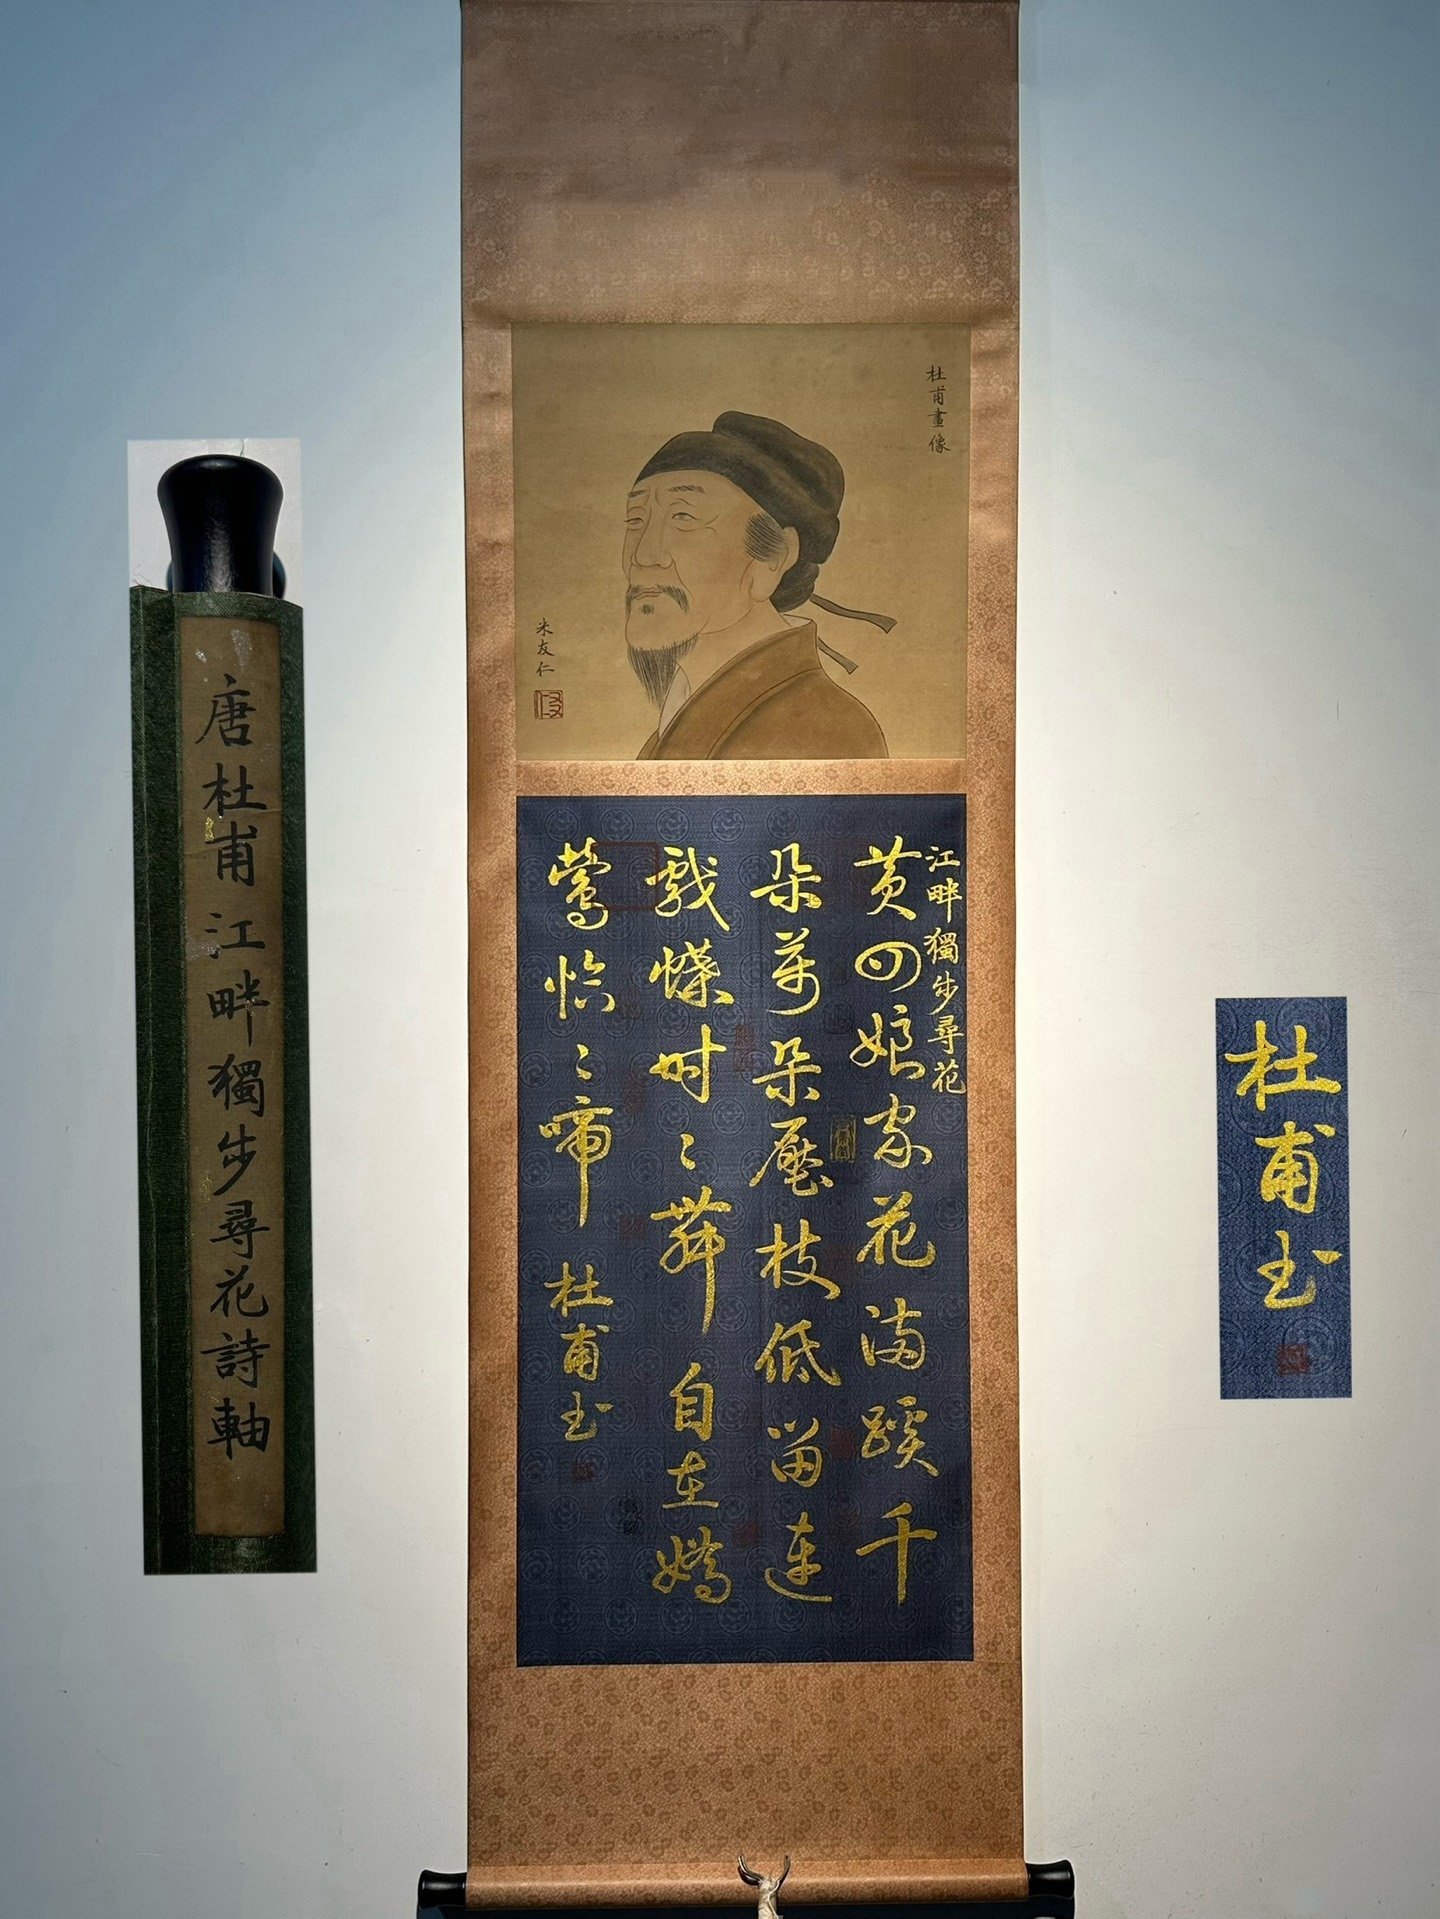 唐杜甫江畔獨步尋花詩軸
杜甫畫像
米友仁
江畔獨步尋花
黄四娘家花满蹊千
朵万朵壓枝低留連
戲蝶时〻舞自在嬌
鶯恰〻啼
杜甫书
杜甫书